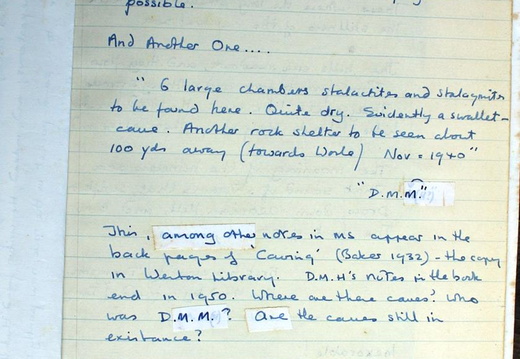 possible.
And Another One....
" 6 large chambers stalactites and stalagmites
to be found here. Quite dry. Evidently a swallet-
cave. Another rock shelter to be seen about
100 yds away (towards Worle) Nov = 1940"
"D.M.M."
This, among other notes in ms appear in the
back pages of 'Caving' (Baker 1932) - the copy
in Weston Library. D.M.H's notes in the book
end in 1950. Where are these caves? Who
was D.M.M.? Are the caves still in
existance?